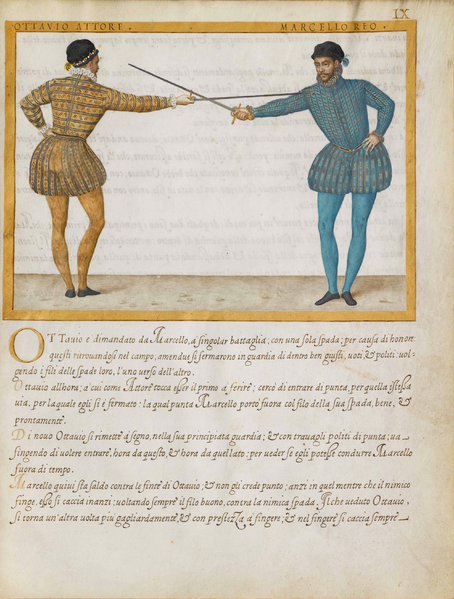 IX
OTTAVIO ATTORE.
MARCELLO REO.
OTTavio è dimandato da Marcello, a singolar battaglia; con una sola spada; per causa di honore
questi ritrovandosi nel campo, amendue si fermarono in guardia di dentro ben giusti, voti, & politi: vol-
gendo i fili delle spade loro, l'uno verso dell'altro.
Ottavio allhora; a cui come Attore tocca esser il primo a ferire; cercò di entrare di punta, per quella istessa
via, per laquale egli si è fermato: la qual punta Marcello portò fuora col filo della sua spada, bene, &
prontamente.
Di novo Ottavio si rimette a segno, nella sua principiata guardia; & con travagli politi di punta; va
fingendo di volere entrare, hora da questo, & hora da quel lato: per veder se egli potesse condurre Marcello
fuora di tempo.
Marcello quivi sta saldo contra le finte di Ottavio; & non gli crede punto; anzi in quel mentre che il nimico
finge, esso si caccia inanzi; voltando sempre il filo buono, contra la nimica spada. Il che veduto Ottavio,
si torna un'altra volta più gagliardamente, & con prestezza a fingere; & nel fingere si caccia sempre